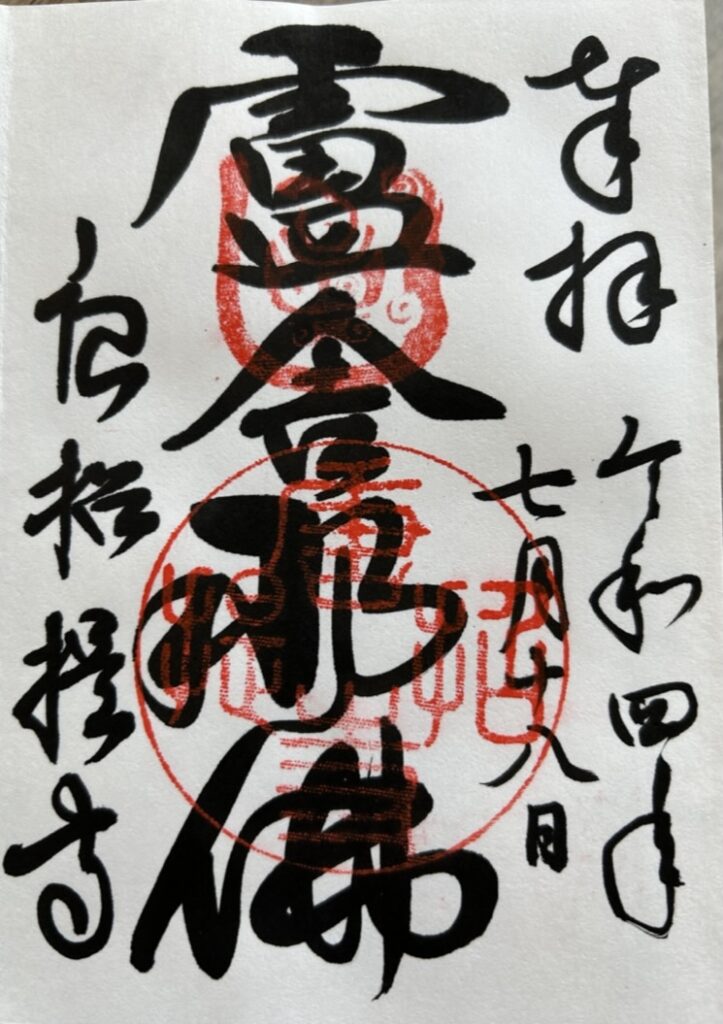 奉拝
令和四年
七月十八日
盧舎那佛
唐招提寺